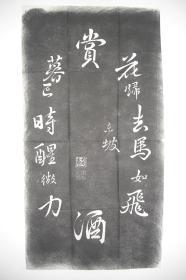 花歸去馬如飛
賞
東坡
酒
暮已時醒微力